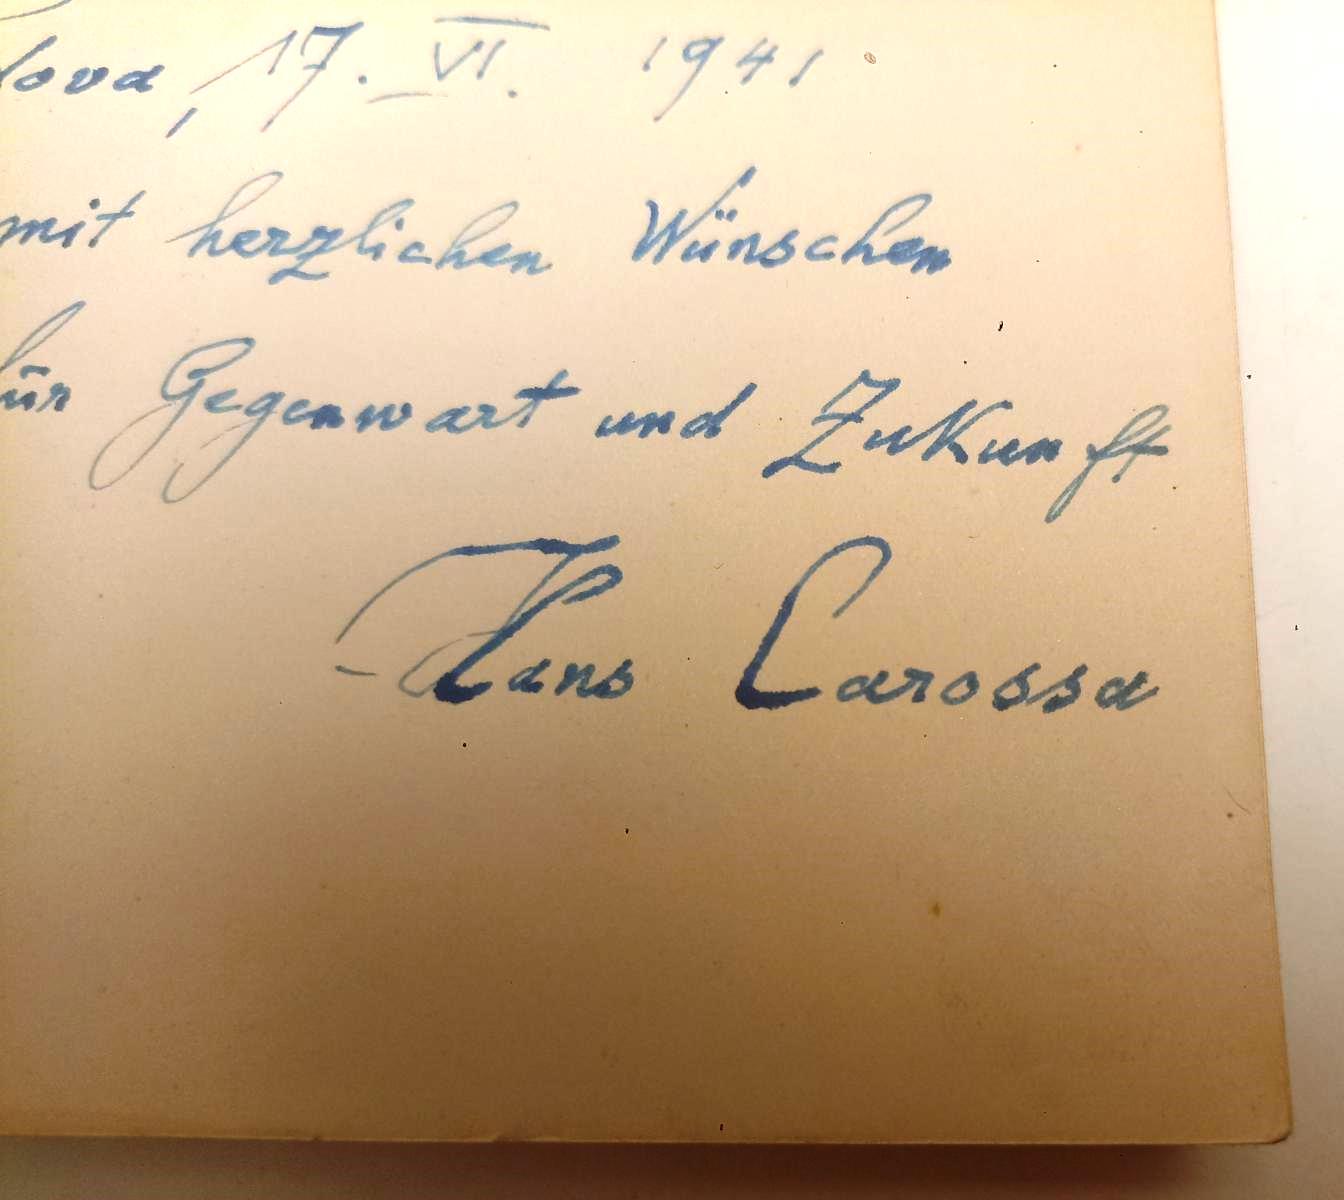 lova, 17. VI. 1941
mit herzlichen Wünschen
für Gegenwart und Zukunft
Hans Carossa